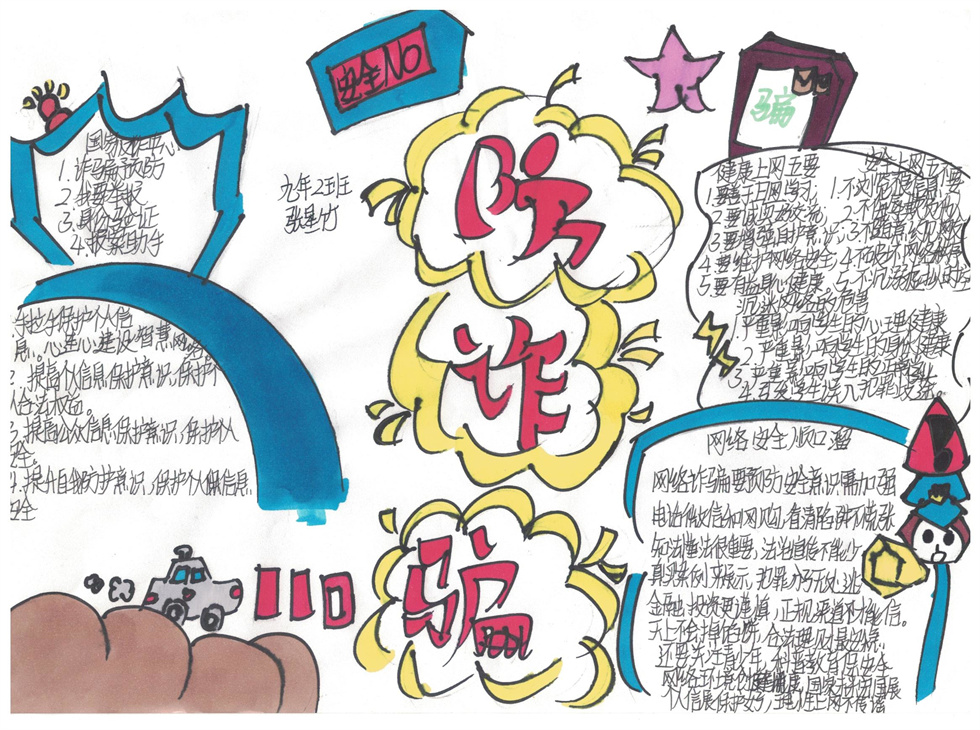 安全NO
骗
国家反诈中心
1.诈骗预防
2.我要举报
3.身份验证
4.报案助手
九年2班
张星竹
防
诈
骗
110
健康上网五要
1.要善于上网学习;
2.要
3.要增强自护意识;
4.要维护网络安全;
5.要有益身心健康。
安全上网五不要
1.不浏览不良信息;
2.不
3.不随意约见网友
4.不破坏网络秩序
5.不沉溺虚拟时空
沉迷网络的危害
1.严重影响学生的心理健康
2.严重影响学生的身体健康
3.严重影响学生的学业
4.引发学生误入犯罪歧途。
手拉手保护个人信
息。心连心建设智慧网
提高个人信息保护意识,保护个
人合法权益。
提高公众信息保护意识,保护个人
安全
提升自我防护意识,保护个人信息
安全
网络安全顺口溜
网络诈骗要预防 安全意识需加强
电话微信和网购,看清陷阱不慌张
知法懂法很重要,法治道德不能少
真实案例来展示,犯罪分子无处逃
金融投资更谨慎,正规渠道才能信。
天上不会掉馅饼,合法
还要关注青少年,科普教育保安全
网络环境创健康,国家
个人信息保护好,理性上网不传谣